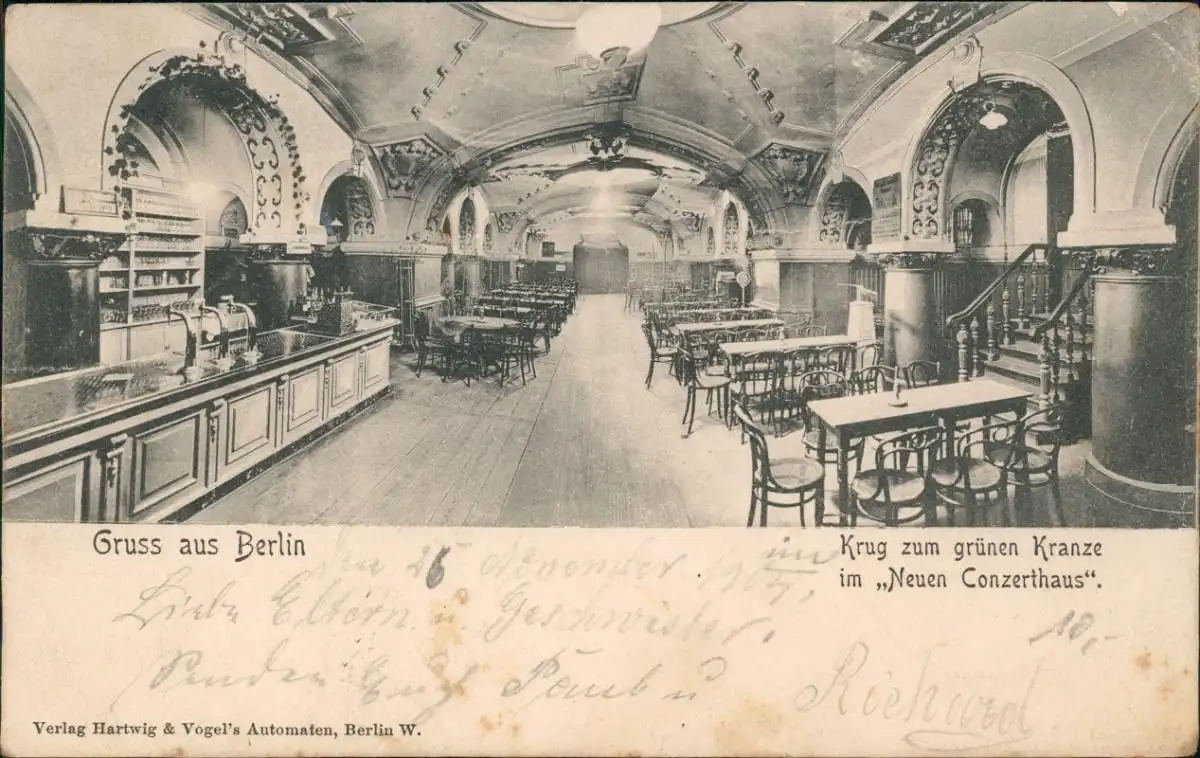 Gruss aus Berlin
Krug zum grünen Kranze
im „Neuen Conzerthaus“.
Den 26 November
Liebe Eltern u. Geschwister.
10,-
Senden Euch u
Richard
Verlag Hartwig & Vogel's Automaten, Berlin W.